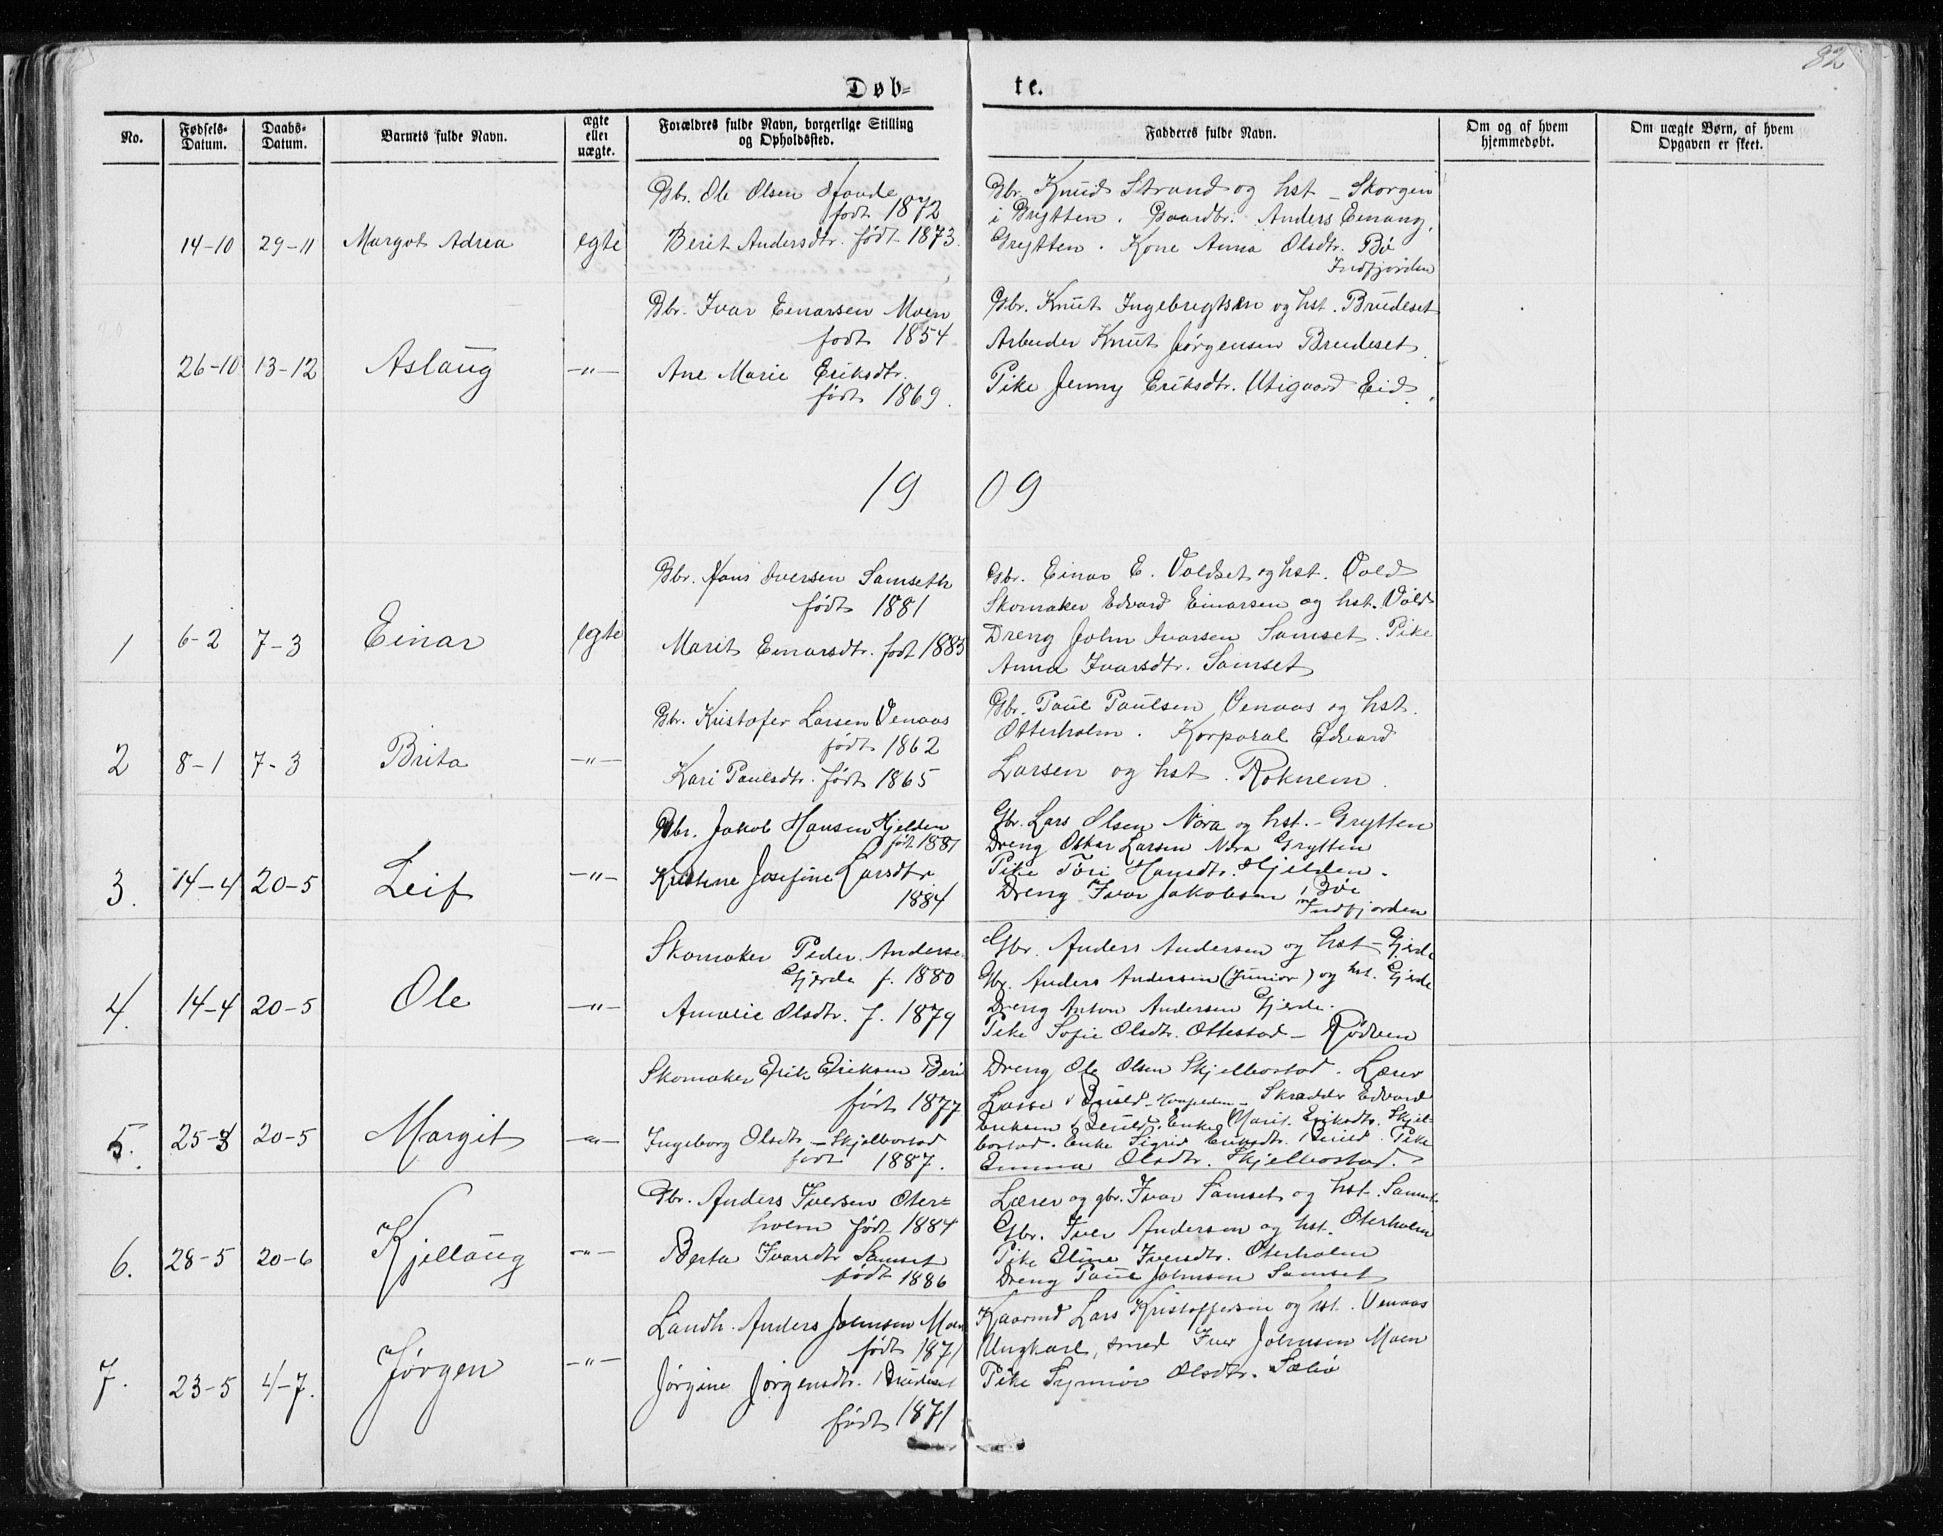 82
Døb- te.
No.
Fødsels-
Datum.
Daabs-
Datum.
Barnets fulde Navn.
ægte
eller
uægte.
Forældres fulde Navn, borgerlige Stilling
og Opholdssted.
Fadderes fulde Navn.
Om og af hvem
hjemmedøbt.
Om uægte Børn, af hvem
Opgaven er skeet.
14-10 29-11 Margot Adrea egte
Gbr. Ole Olsen
født 1872
Berit Andersdtr. født 1873.
Gbr. Knud Strand og hst - Skorgen
i Grytten. Gaardbr. Anders Einang,
Grytten. Kone Anna Olsdtr. Bø
Indfjorden
26-10 13-12 Aslaug -"-
Gbr. Ivar Einarsen Moen
født 1854
Ane Marie Eriksdtr.
født 1869.
Gbr. Knut Ingebrigtsen og hst. Brudeset
Arbeider Knut Jørgensen Brudeset.
Pike Jenny Eriksdtr. Utigaard Eid.
19 09
1 6-2 7-3 Einar egte
Gbr. Hans Iversen Samseth
født 1881
Marit Einarsdtr. født 1885
Gbr. Einar E. Voldset og hst. Vold
Skomaker Edvard Einarsen og hst. Vold
Dreng John Ivarsen Samset. Pike
Anna Ivarsdtr. Samset
2 8-1 7-3 Brita -"-
Gbr. Kristofer Larsen Venaas
født 1862
Kari Paulsdtr. født 1865
Gbr. Paul Paulsen Venaas og hst.
Otterholm. Korporal Edvard
Larsen og hst. Roknem.
3. 14-4 20-5 Leif -"-
Gbr. Jakob Hansen Hjelden
født 1881
Kristine Josefine Larsdtr
1884
Gbr. Lars Olsen Nora og hst. - Grytten
Dreng Oskar Larsen Nora Grytten
Pike Hansdtr. Hjelden.
Dreng Ivar Jakobsen Bøe
Indfjorden
4. 14-4 20-5 Ole -"-
Skomaker Peder Anderse
Gjerde f. 1880
Amalie Olsdtr. f. 1879
Gbr. Anders Andersen og hst - Gjerde
Gbr. Anders Andersen (Junior) og hst. Gjerde
Dreng Anton Andersen Gjerde.
Pike Sofie Olsdtr. Ottestad - Rødven
5. 25-3 20-5 Margit -"-
Skomaker Erik Eriksen
født 1877
Ingeborg Olsdtr - Skjelbostad
født 1887.
Dreng Ole Olsen Skjelbostad. Lærer
Lasse - Skrædder Edvard
Eriksen Enke Marit Eriksdtr. Skjel-
bostad. Enke Sigrid Eriksdtr. Pike
Emma Olsdtr. Skjelbostad.
6. 28-5 20-6 Kjellaug -"-
Gbr. Anders Iversen Oter-
holm født 1884
Berta Ivarsdtr Samset
født 1886
Lærer og gbr. Ivar Samset og hst. Samset
Gbr. Iver Andersen og hst. Oterholm
Pike Eline Iversdtr. Oterholm
Dreng Paul Johnsen Samset
7. 23-5 4-7. Jørgen -"-
Landh. Anders Johnsen Moen
født 1871
Jørgine Jørgensdtr. Brudeset
født 1871
Kaarmd Lars Kristoffersen og hst. Venaas
Ungkarl, smed Iver Johnsen Moen
Pike Synnøve Olsdtr. Sæbø